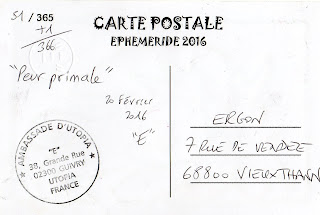 CARTE POSTALE
EPHEMERIDE 2016
51 / 365
+1
366
"Peur primale"
20 Février
2016
"E"
AMBASSADE D'UTOPIA
"E"
30, Grande Rue
02300 GUIVRY
UTOPIA
FRANCE
ERGON
7 RUE DE VENDEE
68800 VIEUX THANN